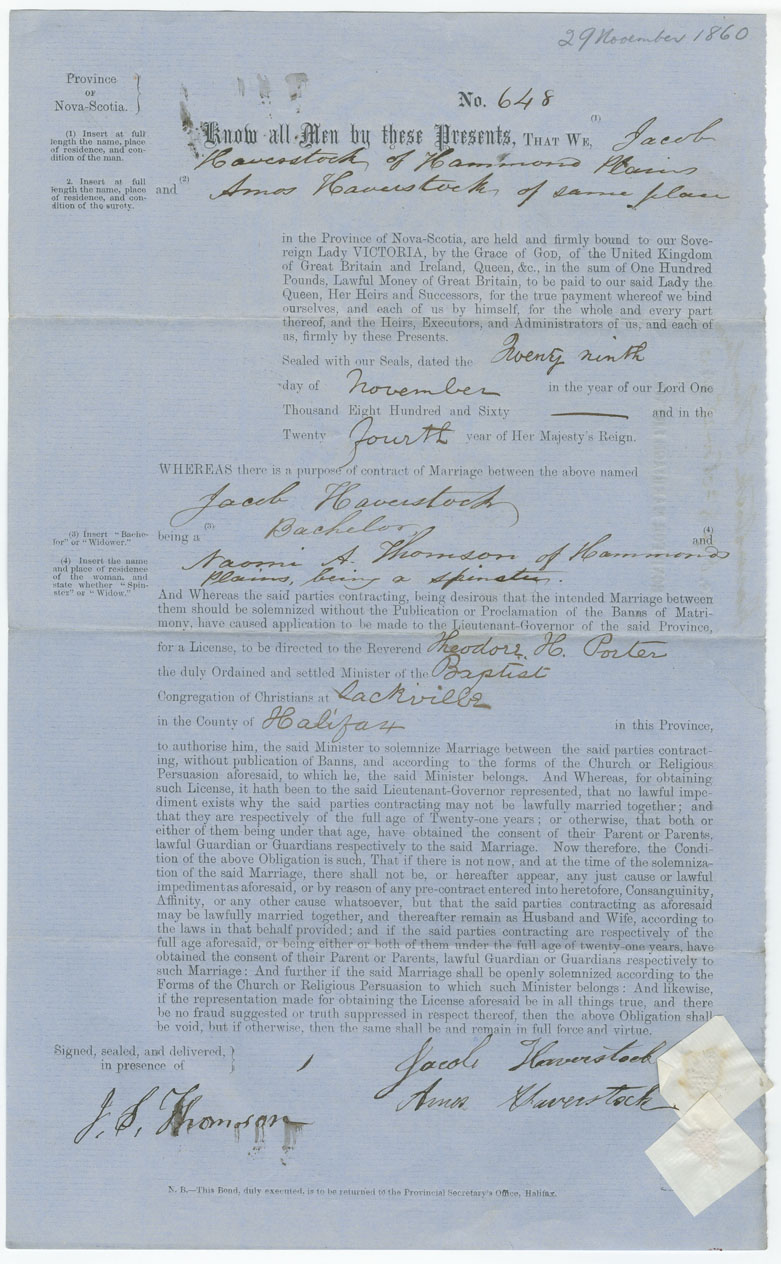 29 November 1860
Province
OF
Nova-Scotia.
No. 648
(1) Insert at full
length the name, place
of residence, and con-
dition of the man.
Know all Men by these Presents, THAT WE, (1) Jacob
Haverstock of Hammond Plains
2. Insert at full
length the name, place
of residence, and con-
dition of the surety.
and (2) Amos Haverstock of same place
in the Province of Nova-Scotia, are held and firmly bound to our Sove-
reign Lady VICTORIA, by the Grace of GOD, of the United Kingdom
of Great Britain and Ireland, Queen, &c., in the sum of One Hundred
Pounds, Lawful Money of Great Britain, to be paid to our said Lady the
Queen, Her Heirs and Successors, for the true payment whereof we bind
ourselves, and each of us by himself, for the whole and every part
thereof, and the Heirs, Executors, and Administrators of us, and each of
us, firmly by these Presents.
Sealed with our Seals, dated the Twenty ninth
day of November in the year of our Lord One
Thousand Eight Hundred and Sixty —— and in the
Twenty fourth year of Her Majesty's Reign.
WHEREAS there is a purpose of contract of Marriage between the above named
Jacob Haverstock
(3) Insert "Bache-
lor" or "Widower."
being a (3) Bachelor (4) and
(4) Insert the name
and place of residence
of the woman, and
state whether "Spin-
ster" or "Widow."
Naomi A. Thomson of Hammonds
Plains, being a spinster.
And Whereas the said parties contracting, being desirous that the intended Marriage between
them should be solemnized without the Publication or Proclamation of the Banns of Matri-
mony, have caused application to be made to the Lieutenant-Governor of the said Province,
for a License, to be directed to the Reverend Theodore H. Porter
the duly Ordained and settled Minister of the Baptist
Congregation of Christians at Sackville
in the County of Halifax in this Province,
to authorise him, the said Minister to solemnize Marriage between the said parties contract-
ing, without publication of Banns, and according to the forms of the Church or Religious
Persuasion aforesaid, to which he, the said Minister belongs. And Whereas, for obtaining
such License, it hath been to the said Lieutenant-Governor represented, that no lawful impe-
diment exists why the said parties contracting may not be lawfully married together; and
that they are respectively of the full age of Twenty-one years; or otherwise, that both or
either of them being under that age, have obtained the consent of their Parent or Parents,
lawful Guardian or Guardians respectively to the said Marriage. Now therefore, the Condi-
tion of the above Obligation is such, That if there is not now, and at the time of the solemniza-
tion of the said Marriage, there shall not be, or hereafter appear, any just cause or lawful
impediment as aforesaid, or by reason of any pre-contract entered into heretofore, Consanguinity,
Affinity, or any other cause whatsoever, but that the said parties contracting as aforesaid
may be lawfully married together, and thereafter remain as Husband and Wife, according to
the laws in that behalf provided; and if the said parties contracting are respectively of the
full age aforesaid, or being either or both of them under the full age of twenty-one years, have
obtained the consent of their Parent or Parents, lawful Guardian or Guardians respectively to
such Marriage: And further if the said Marriage shall be openly solemnized according to the
Forms of the Church or Religious Persuasion to which such Minister belongs: And likewise,
if the representation made for obtaining the License aforesaid be in all things true, and there
be no fraud suggested or truth suppressed in respect thereof, then the above Obligation shall
be void, but if otherwise, then the same shall be and remain in full force and virtue.
Signed, sealed, and delivered,
in presence of
Jacob Haverstock
Amos Haverstock
J. S. Thomson
N. B.—This Bond, duly executed, is to be returned to the Provincial Secretary's Office, Halifax.